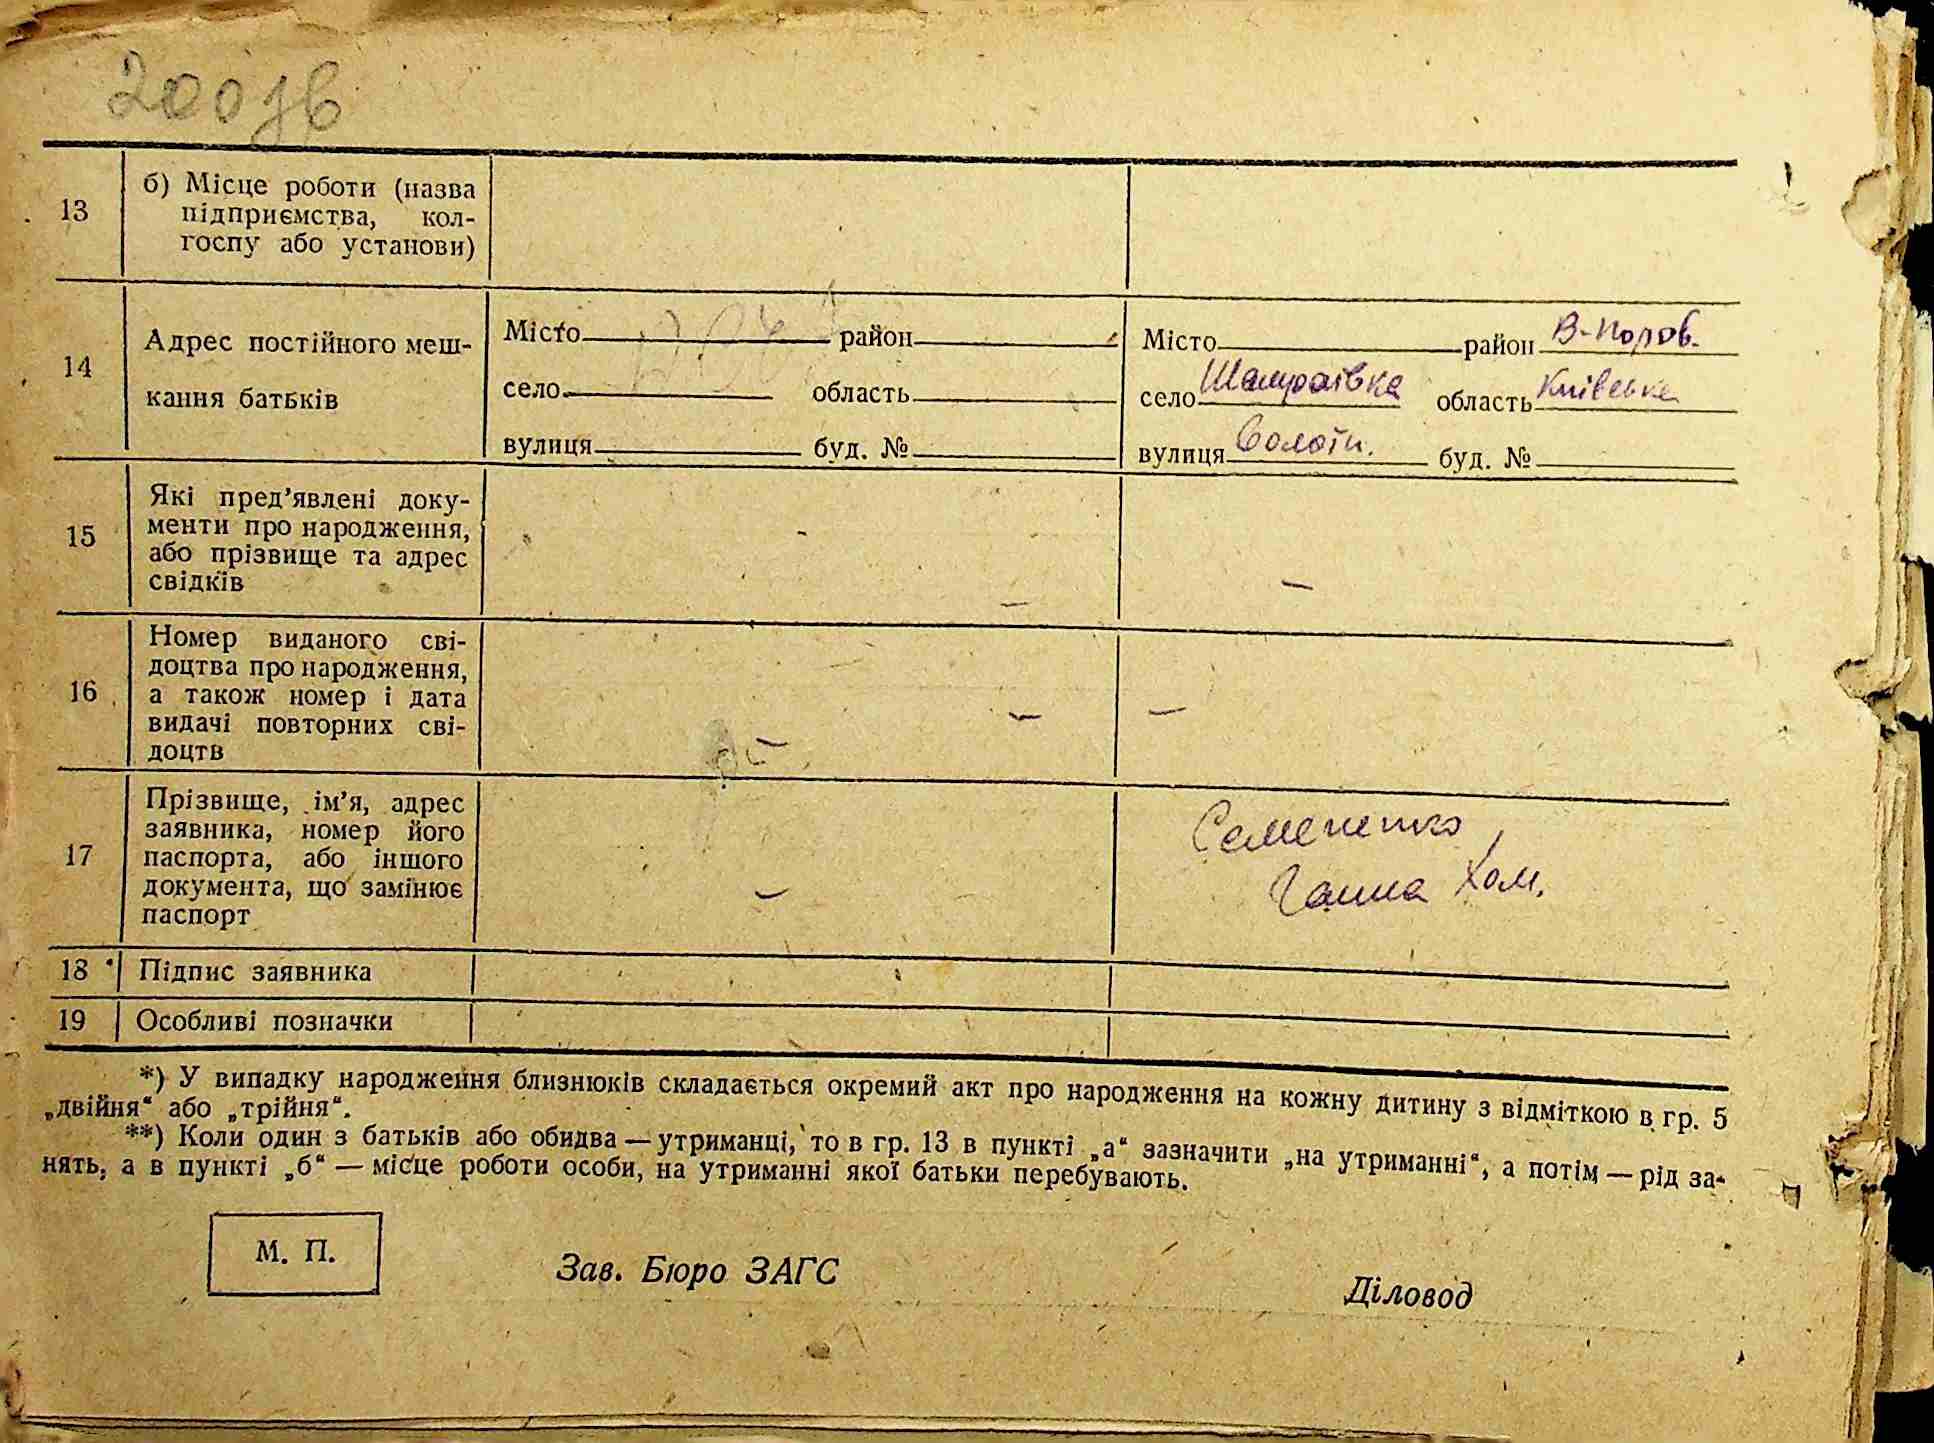 200зв
13
б) Місце роботи (назва
підприємства, кол-
госпу або установи)
14
Адрес постійного меш-
кання батьків
Місто район
село область
вулиця буд. №
Місто район В-Полов.
село Шамраївка область Київська
вулиця буд. №
15
Які пред’явлені доку-
менти про народження,
або прізвище та адрес
свідків
–
–
16
Номер виданого сві-
доцтва про народження,
а також номер і дата
видачі повторних сві-
доцтв
–
–
–
17
Прізвище, ім’я, адрес
заявника, номер його
паспорта, або іншого
документа, що замінює
паспорт
–
Семененко
Ганна Хом.
18 Підпис заявника
19 Особливі позначки
*) У випадку народження близнюків складається окремий акт про народження на кожну дитину з відміткою в гр. 5
„двійня“ або „трійня“.
**) Коли один з батьків або обидва — утриманці, то в гр. 13 в пункті „а“ зазначити „на утриманні“, а потім — рід за-
нять, а в пункті „б“ — місце роботи особи, на утриманні якої батьки перебувають.
М. П.
Зав. Бюро ЗАГС
Діловод